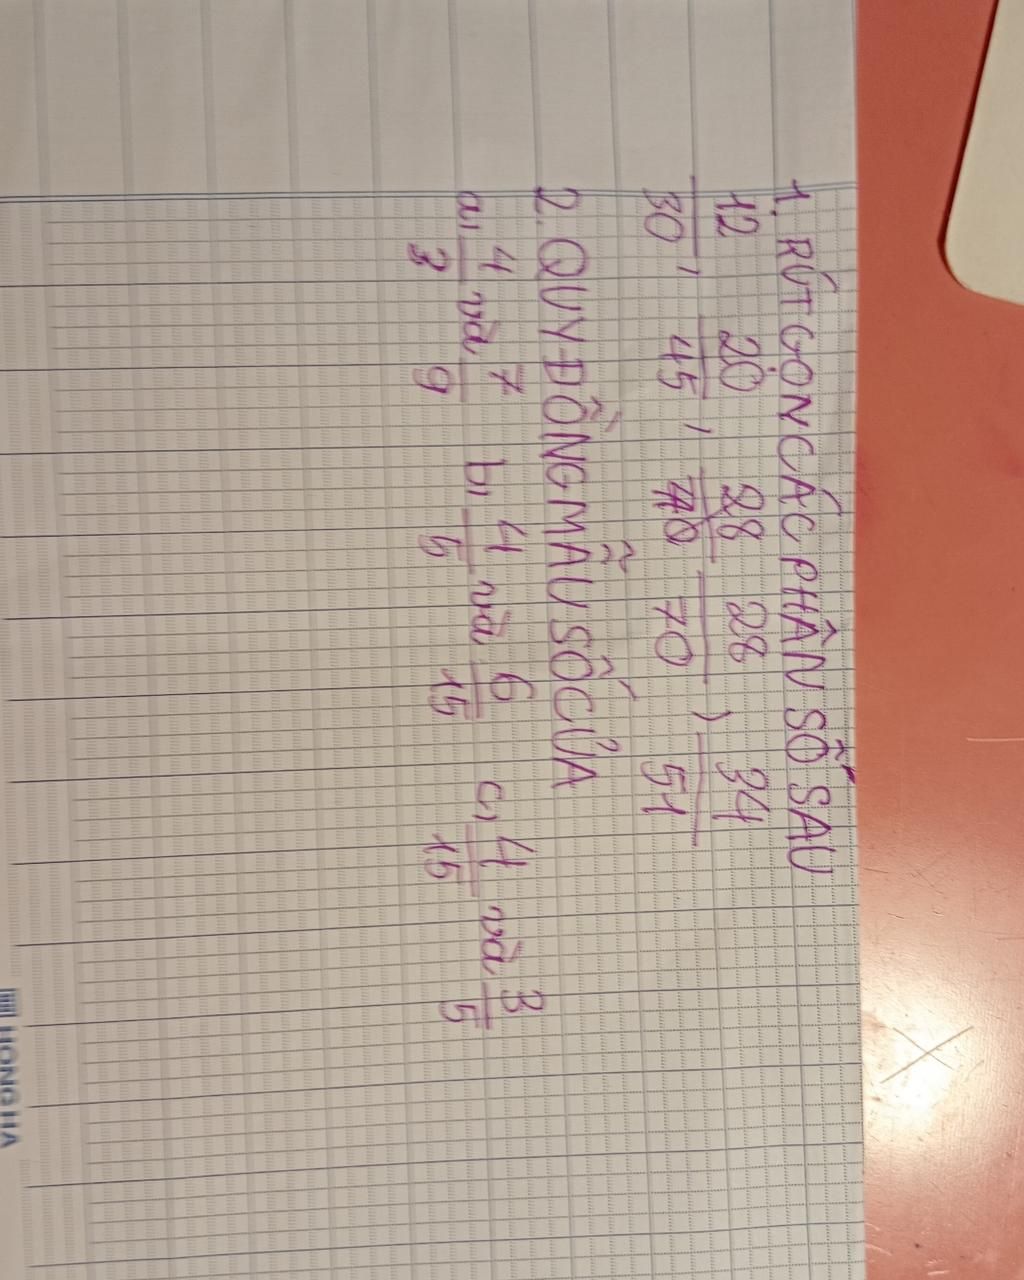 1. RÚT GỌN CÁC PHÂN SỐ SAU
12/30, 20/45, 28/70, 34/51
2. QUY ĐỒNG MẪU SỐ CỦA
a, 4/3 và 7/9 b, 4/5 và 6/15 c, 4/15 và 3/5
HONGHA